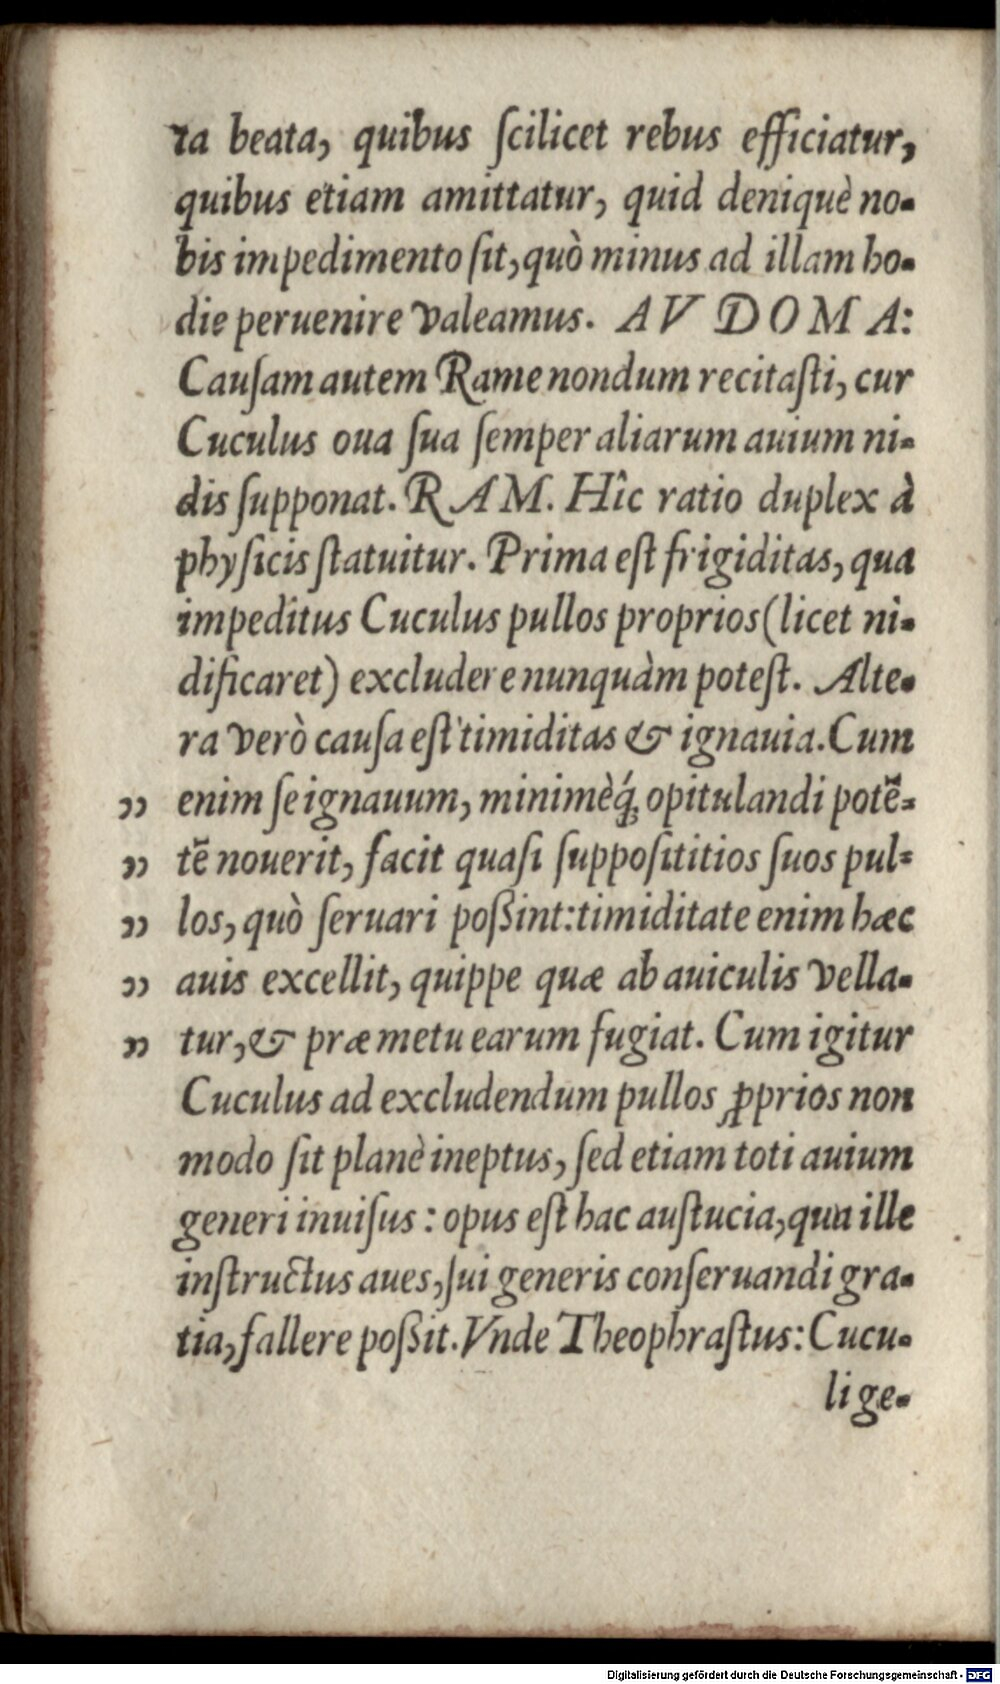 ta beata, quibus ſcilicet rebus efficiatur,
quibus etiam amittatur, quid deniquè no-
bis impedimento ſit, quò minus ad illam ho-
die peruenire valeamus. AVDOMA:
Cauſam autem Rame nondum recitaſti, cur
Cuculus oua ſua ſemper aliarum auium ni-
dis ſupponat. RAM. Hîc ratio duplex à
phyſicis ſtatuitur. Prima eſt frigiditas, qua
impeditus Cuculus pullos proprios (licet ni-
dificaret) excludere nunquàm poteſt. Alte-
ra verò cauſa eſt timiditas & ignauia. Cum
„ enim ſe ignauum, minimèq́; opitulandi potẽ-
„ tẽ nouerit, facit quaſi ſuppoſititios ſuos pul-
„ los, quò ſeruari poßint: timiditate enim hæc
„ auis excellit, quippe quæ ab auiculis vella-
„ tur, & præ metu earum fugiat. Cum igitur
Cuculus ad excludendum pullos ꝓprios non
modo ſit planè ineptus, ſed etiam toti auium
generi inuiſus: opus eſt hac auſtucia, qua ille
inſtructus aues, ſui generis conſeruandi gra-
tia, fallere poßit. Vnde Theophraſtus: Cucu-
li ge-
Digitalisierung gefördert durch die Deutsche Forschungsgemeinschaft - DFG